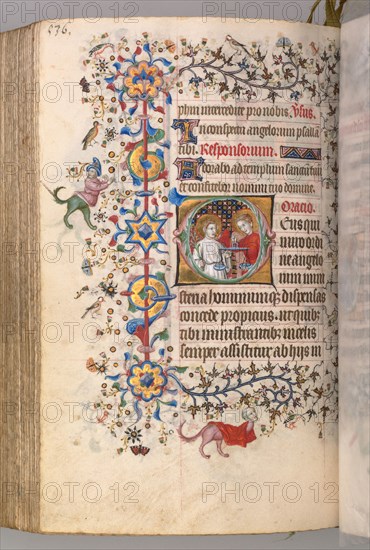 236.
phin intercedite pro nobis. Vsus.
In conspectu angelorum psallā
tibi. Responsorum.
Adorabo ad templum sanctū tuū
et confitebor nomini tuo domine.
Oracio.
Deus qui
miro ordi
ne angelo
rum mini
steria hominumq dispensas
concede propicius. ut quib
tibi ministrantib in celis
semper assistitur ab hijs in
PHOTO12